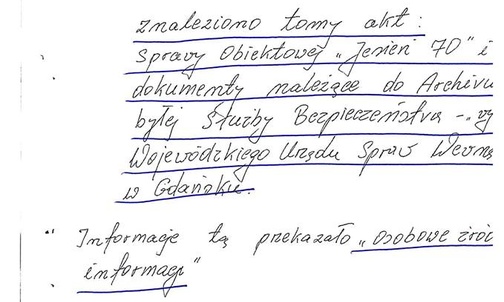 znaleziono tomy akt:
Sprawy Obiektowej „Jesień 70” i
dokumenty należące do Archiwu
byłej Służby Bezpieczeństwa -
Wojewódzkiego Urzędu Spraw Wewnę
w Gdańsku.
Informację tą przekazało „osobowe źród
informacji”